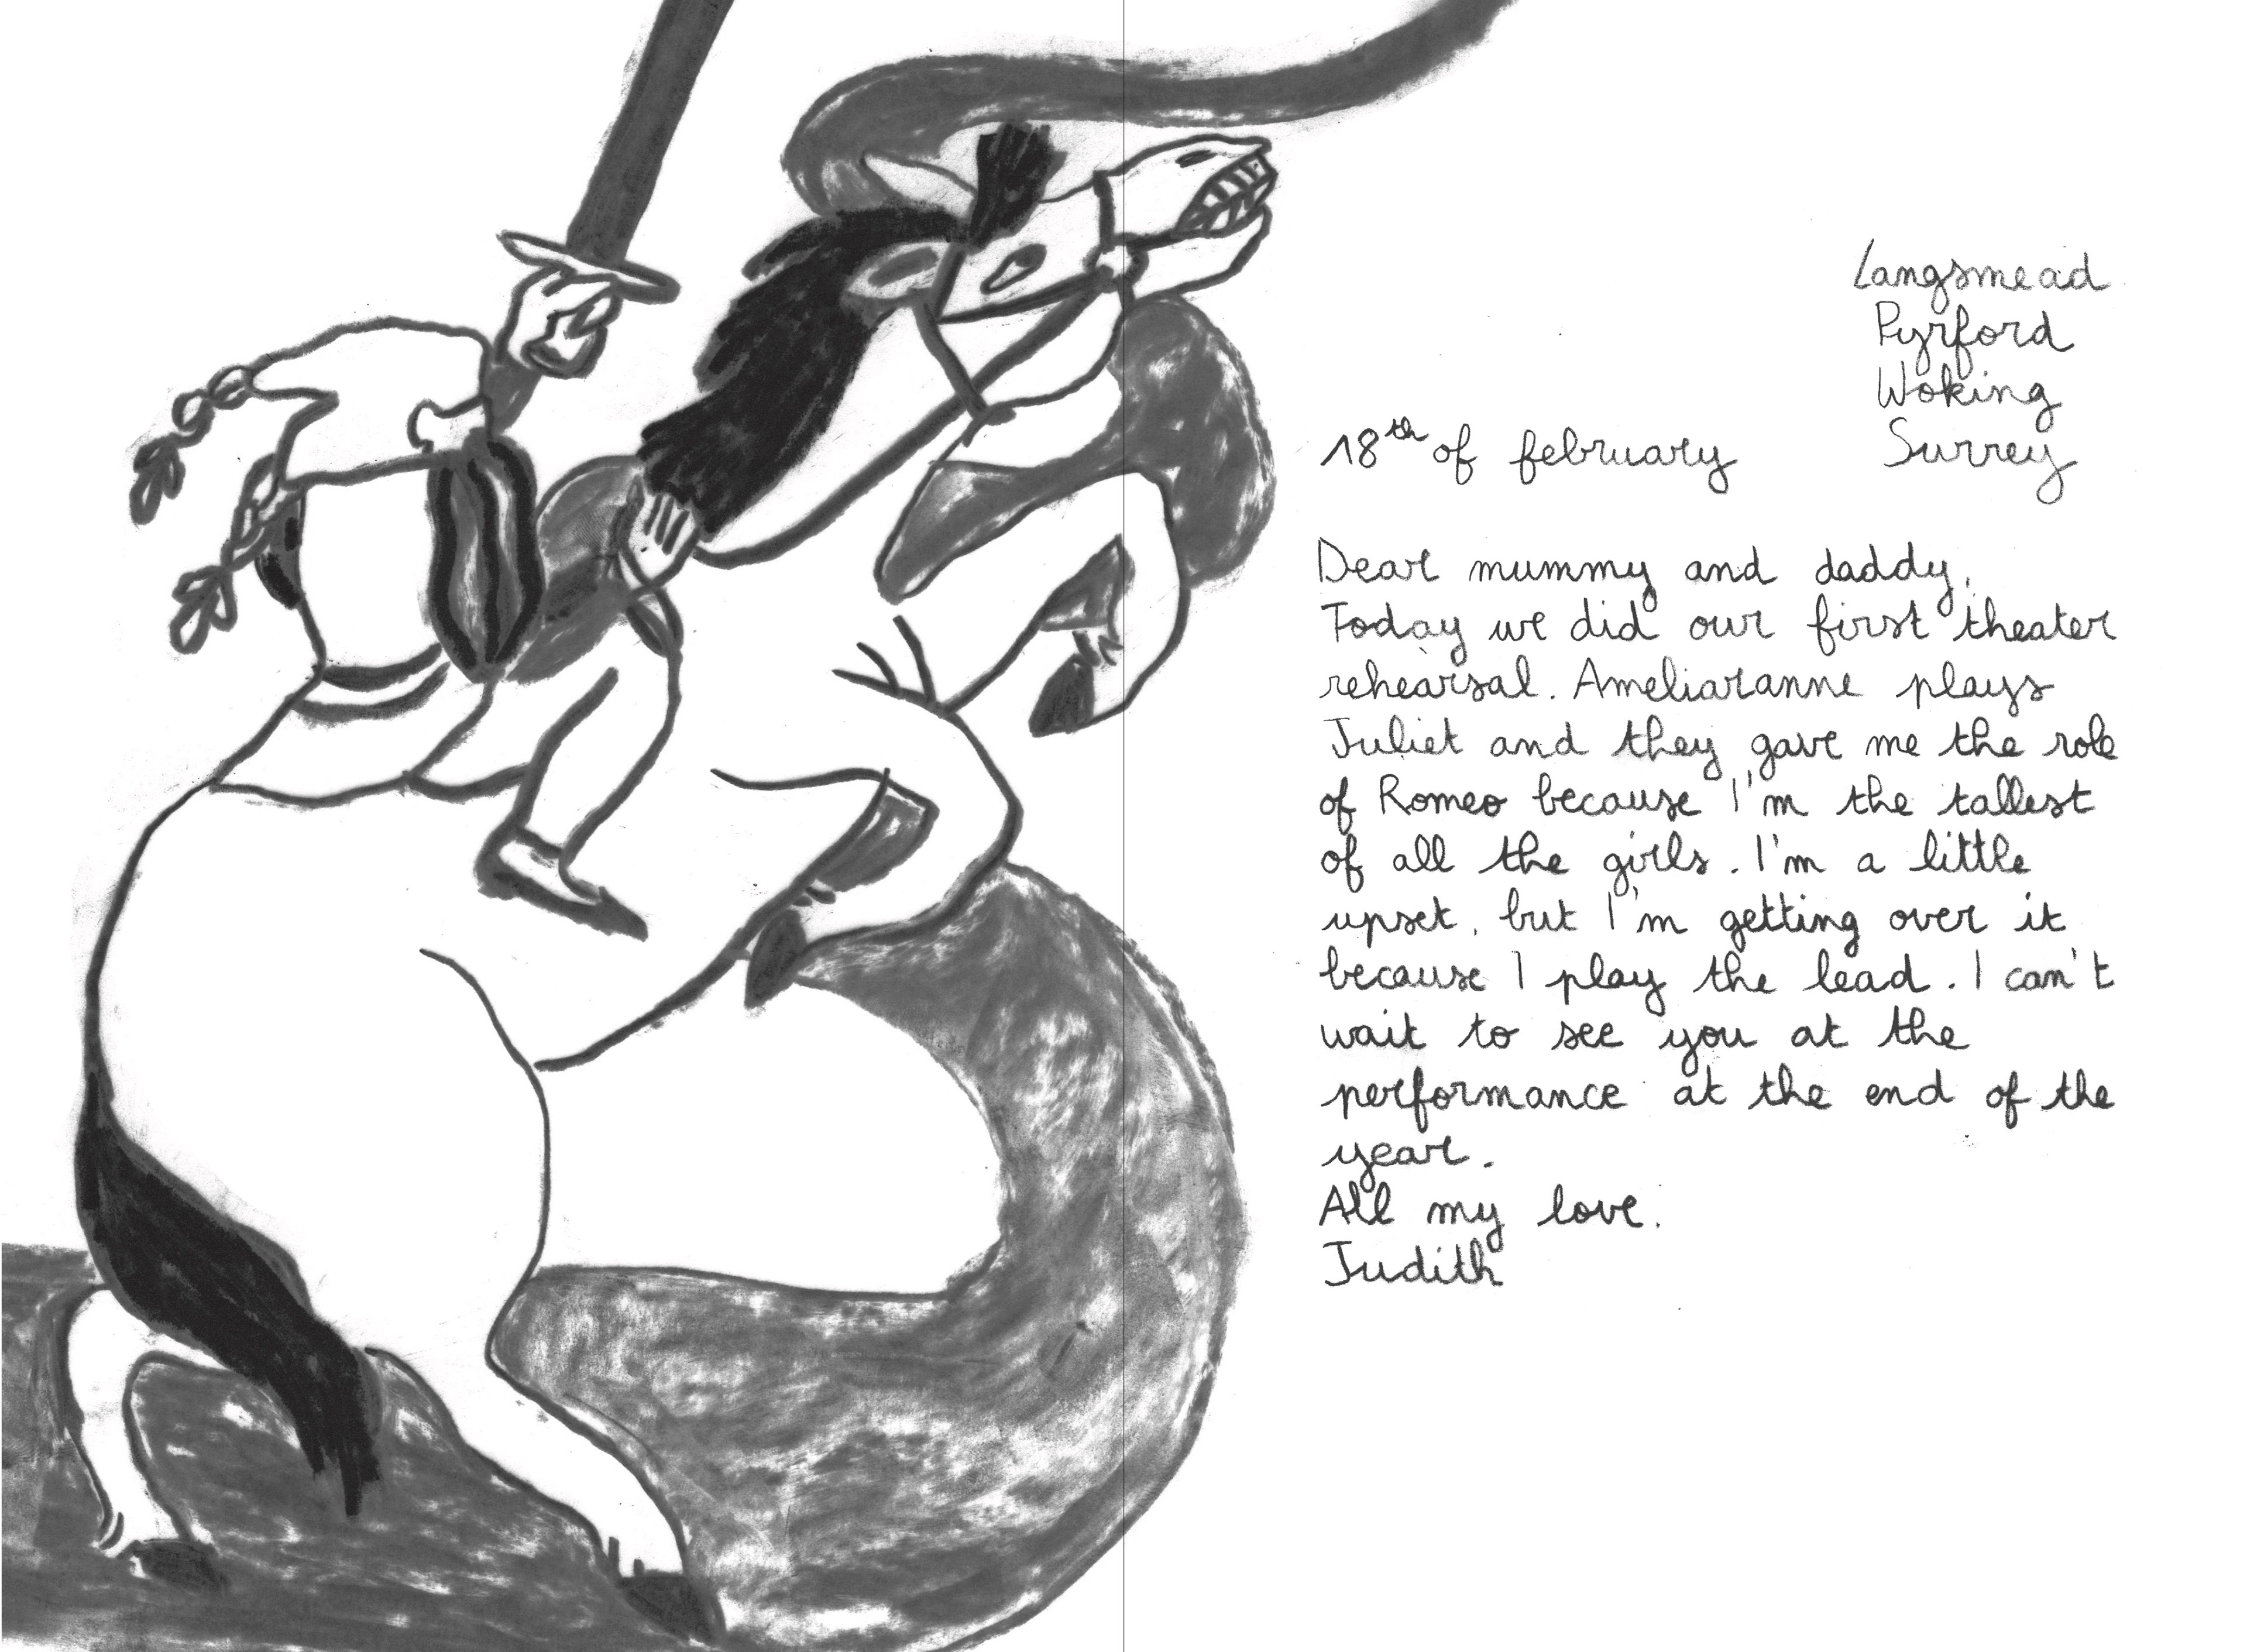 Langsmead
Pyrford
Woking
Surrey
18th of february
Dear mummy and daddy,
Today we did our first theater
rehearsal. Ameliaranne plays
Juliet and they gave me the role
of Romeo because I'm the tallest
of all the girls. I'm a little
upset, but I'm getting over it
because I play the lead. I can't
wait to see you at the
performance at the end of the
year.
All my love.
Judith